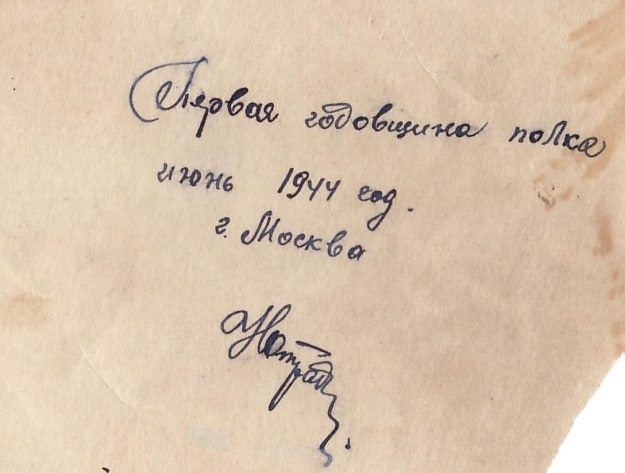 Первая годовщина полка
июнь 1944 год.
г. Москва